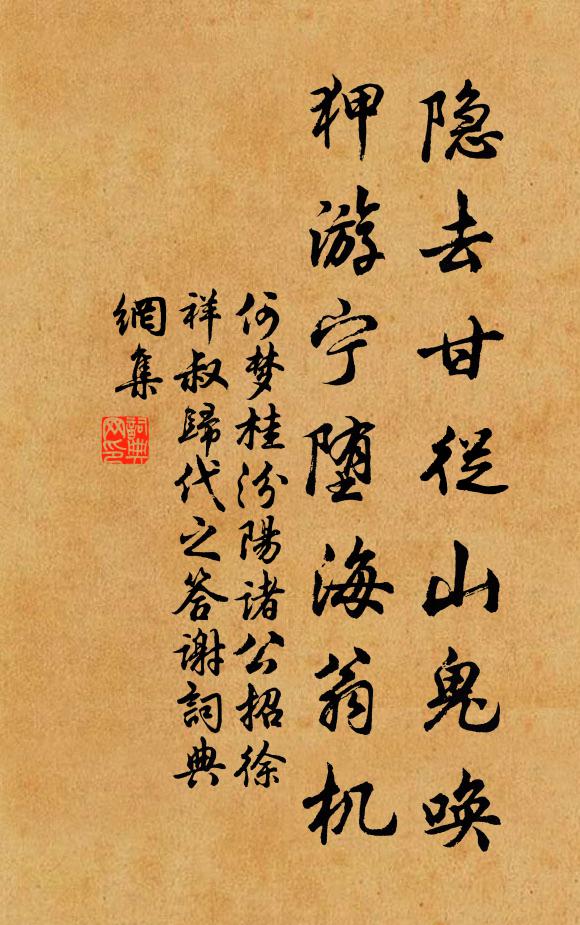 隐去甘從山鬼唤
狎游宁堕海翁机
何梦桂汾陽诸公招徐
祥叔歸代之答谢詞典
網集
詞典
网印